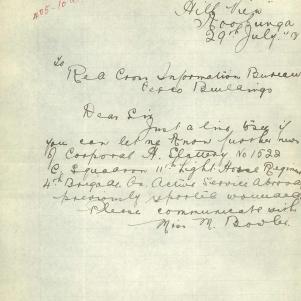 "Hill View"
29th July "18
To
Red Cross Information Bureau
Buildings
Dear Sir
Just a line to see if
you can let me know further news
of Corporal H. Slattery No 1522
C Squadron 11th Light Horse Regiment
4th Brigade. On Active Service Abroad
previously reported wounded
Please communicate with
Miss M. Bowles.